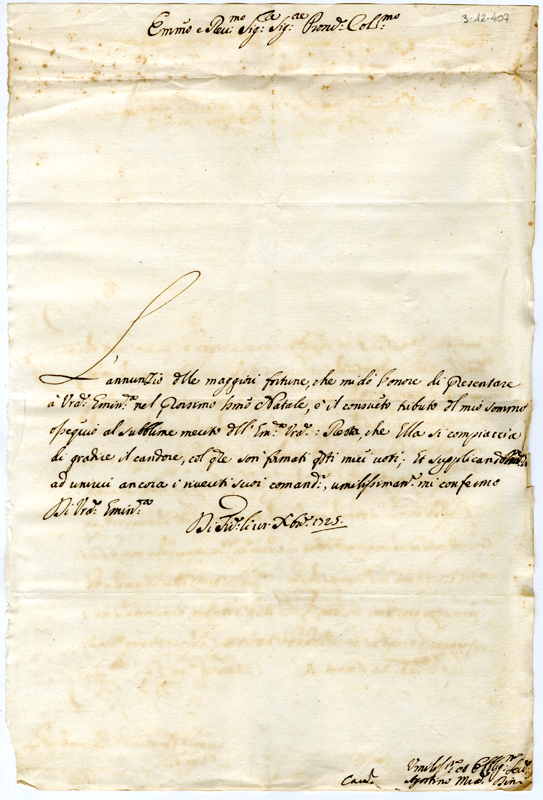 3-12-407
Emmo e Reu:mo Sig:re Sig:re Prone: Coll:mo
L'annunzio delle maggiori fortune, che mi dò l'onore di presentare
à Vra: Emin:za nel prossimo Smo Natale, è il consueto tributo del mio sommo
ossequio al sublime merito dell'Em:za Vra: Resta, che Ella si compiaccia
di gradire il candore, col qle son firmati qsti miei voti; Et supplicandola
ad unirui ancora i riueriti suoi comandi:, umilissimam:te mi confermo
Di Vra: Emin:za
Di 1725.
Umiliss:mo et Obblig:mo
Agostino